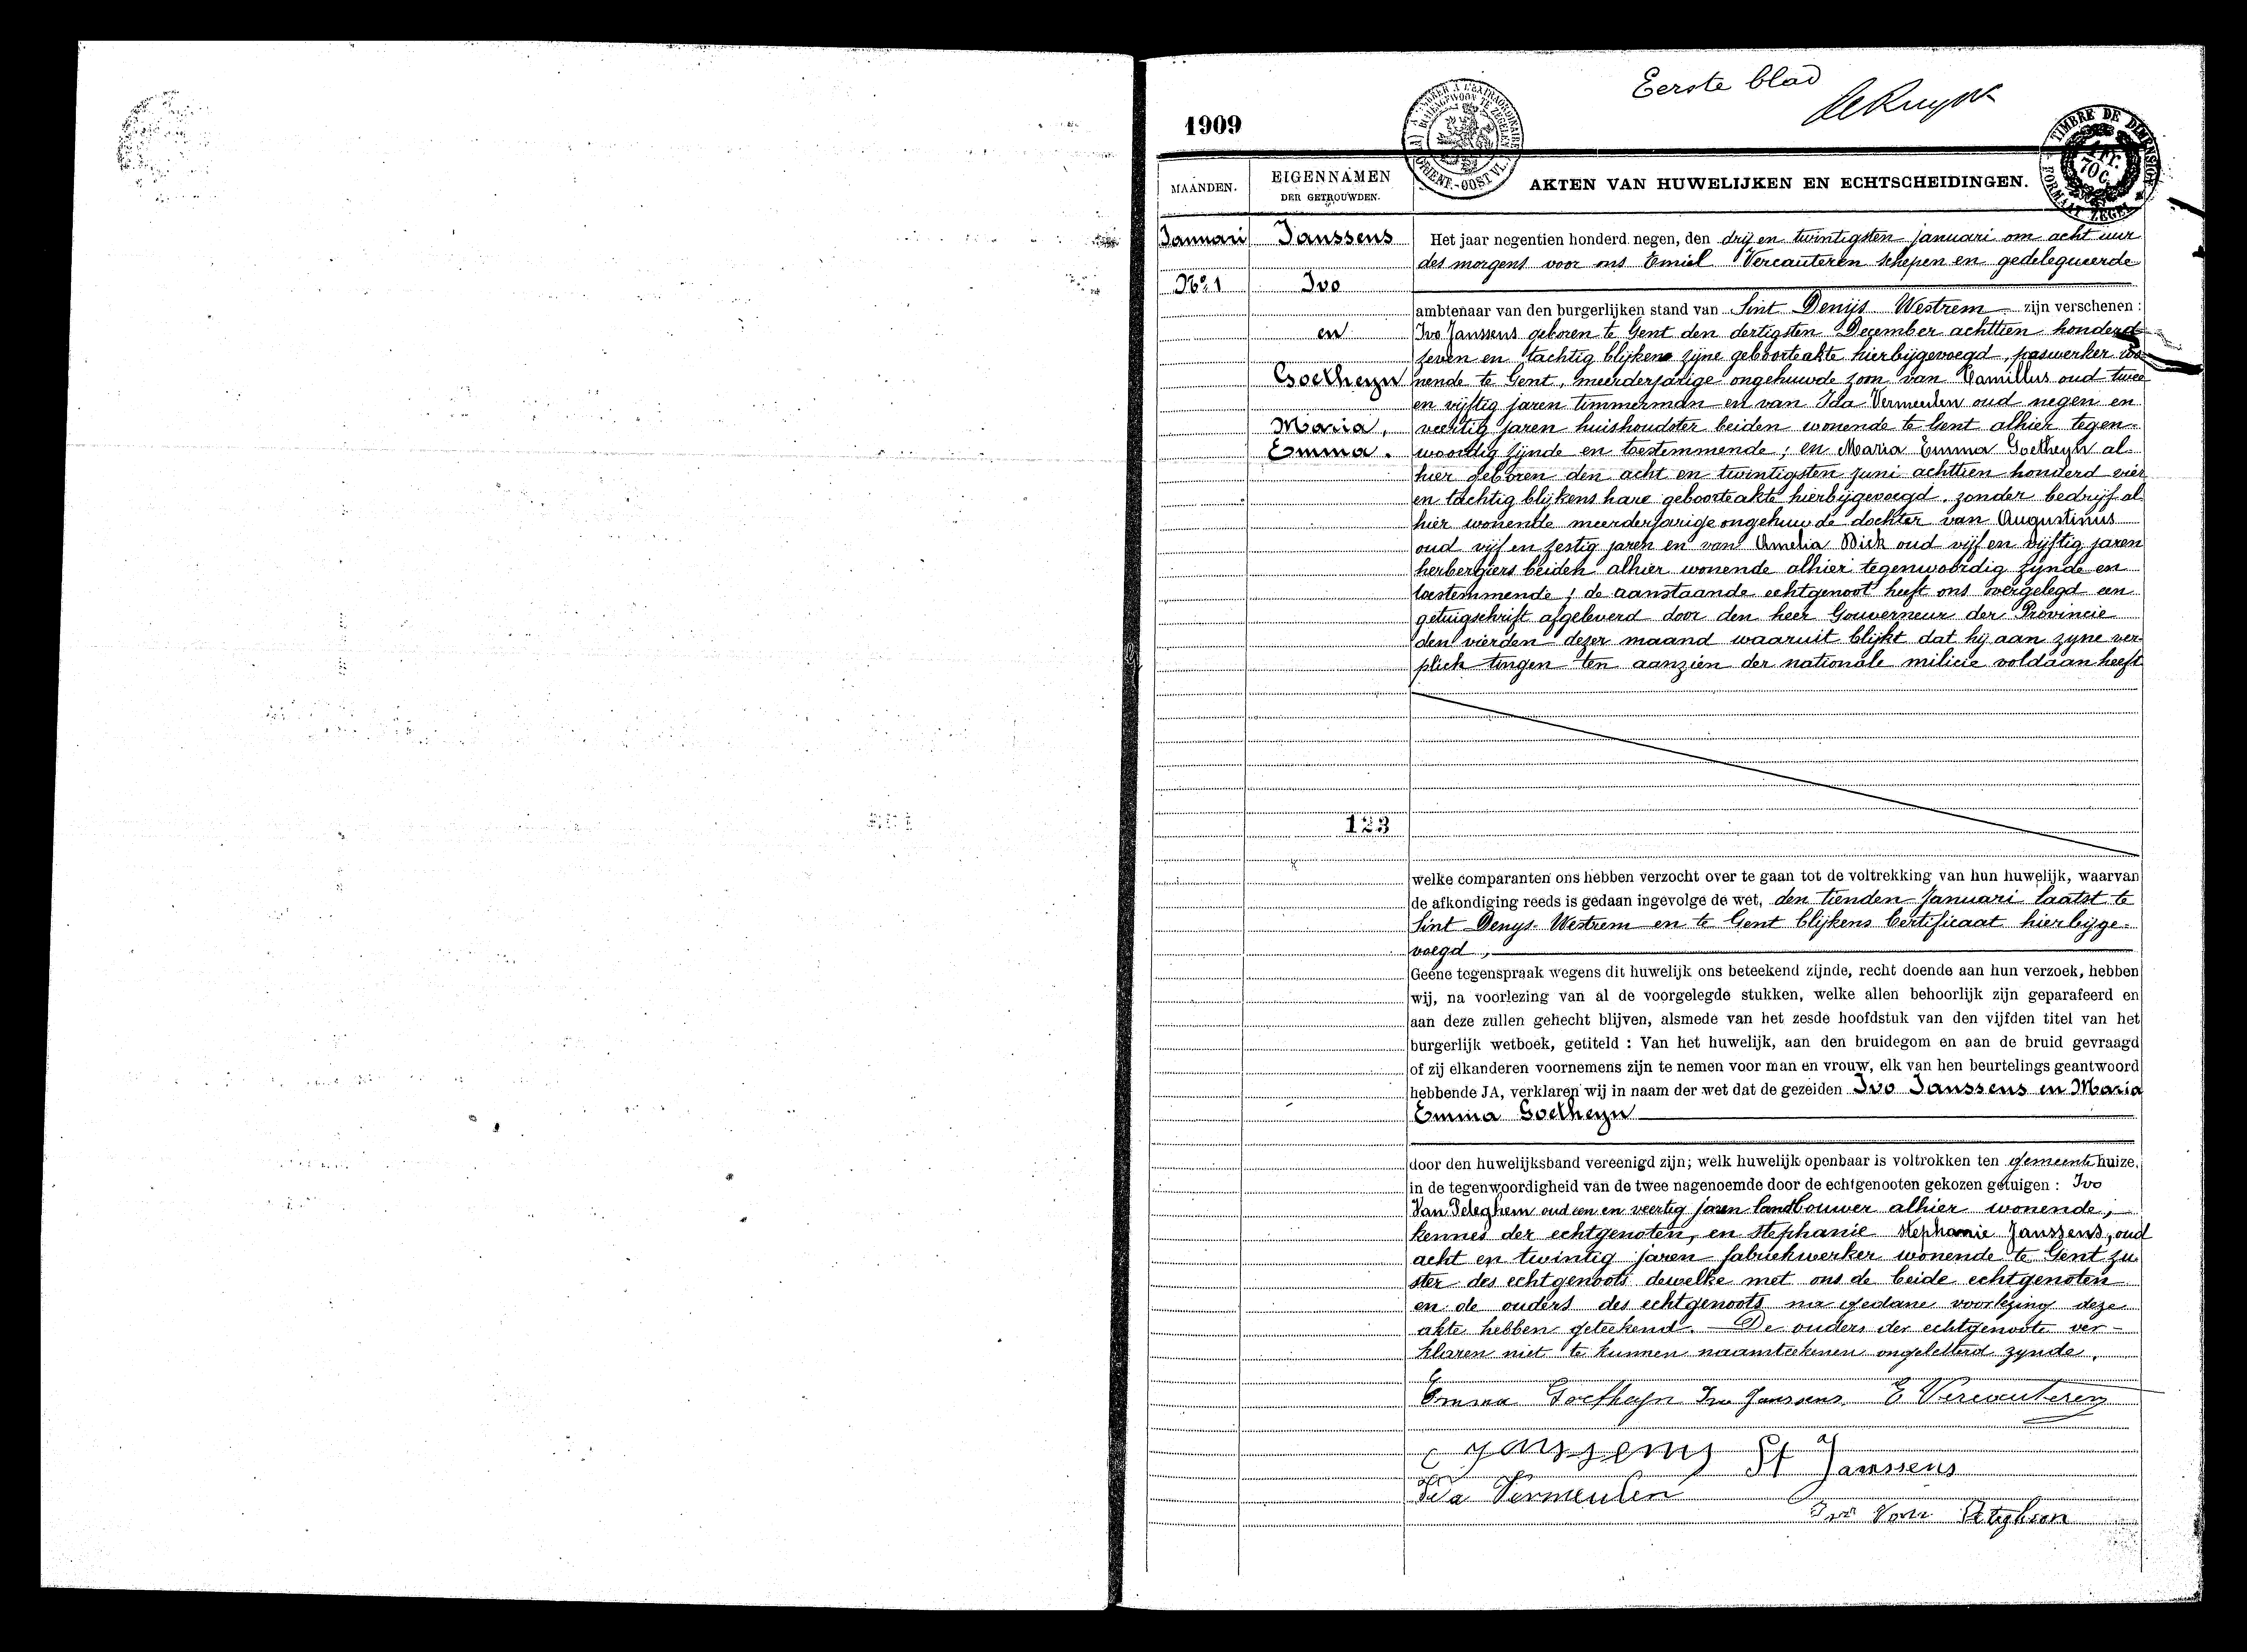 Eerste blad
De Ruyck
1909
TIMBRE DE DIMENSION
FORMAAT ZEGEL
GENT.-OOST VL.
70 C.
MAANDEN.
EIGENNAMEN
DER GETROUWDEN.
AKTEN VAN HUWELIJKEN EN ECHTSCHEIDINGEN.
Januari
No. 1
Janssens
Ivo
en
Goetheyn
Maria,
Emma.
123
Het jaar negentien honderd negen, den drij en twintigsten januari om acht uur
des morgens voor ons Emiel Vercauteren schepen en gedelegueerde
ambtenaar van den burgerlijken stand van Sint Denijs Westrem zijn verschenen :
Ivo Janssens geboren te Gent den dertigsten December achttien honderd
zeven en tachtig blijkens zijne geboorteakte hierbijgevoegd, paswerker wo-
nende te Gent, meerderjarige ongehuwde zoon van Camillus oud twee
en vijftig jaren timmerman en van Ida Vermeulen oud negen en
veertig jaren huishoudster beiden wonende te Gent alhier tegen-
woordig zijnde en toestemmende ; en Maria Emma Goetheyn al-
hier geboren den acht en twintigsten juni achttien honderd vier
en tachtig blijkens hare geboorteakte hierbijgevoegd, zonder bedrijf al-
hier wonende meerderjarige ongehuwde dochter van Augustinus
oud vijf en zestig jaren en van Amelia Dick oud vijf en vijftig jaren
herbergiers beiden alhier wonende alhier tegenwoordig zijnde en
toestemmende ; de aanstaande echtgenoot heeft ons overgelegd een
getuigschrift afgeleverd door den heer Gouverneur der Provincie
den vierden dezer maand waaruit blijkt dat hij aan zyne ver-
plich tingen ten aanzien der nationale milicie voldaan heeft
welke comparanten ons hebben verzocht over te gaan tot de voltrekking van hun huwelijk, waarvan
de afkondiging reeds is gedaan ingevolge de wet, den tienden Januari laatst te
Sint Denys-Westrem en te Gent blijkens Certificaat hierbijge-
voegd ;
Geene tegenspraak wegens dit huwelijk ons beteekend zijnde, recht doende aan hun verzoek, hebben
wij, na voorlezing van al de voorgelegde stukken, welke allen behoorlijk zijn geparafeerd en
aan deze zullen gehecht blijven, alsmede van het zesde hoofdstuk van den vijfden titel van het
burgerlijk wetboek, getiteld : Van het huwelijk, aan den bruidegom en aan de bruid gevraagd
of zij elkanderen voornemens zijn te nemen voor man en vrouw, elk van hen beurtelings geantwoord
hebbende JA, verklaren wij in naam der wet dat de gezeiden Ivo Janssens en Maria
Emma Goetheyn
door den huwelijksband vereenigd zijn; welk huwelijk openbaar is voltrokken ten gemeente huize,
in de tegenwoordigheid van de twee nagenoemde door de echtgenooten gekozen getuigen : Ivo
Van Peteghem oud een en veertig jaren landbouwer alhier wonende,
kennes der echtgenoten, en Stephanie Stephanie Janssens, oud
acht en twintig jaren fabriekwerker wonende te Gent zu-
ster des echtgenoots dewelke met ons de beide echtgenoten
en de ouders des echtgenoots na gedane voorlezing deze
akte hebben geteekend. - De ouders der echtgenoote ver-
klaren niet te kunnen naamteekenen ongeletterd zynde.
Emma Goetheyn Ivo Janssens. E Vercauteren
C Janssens St Janssens
Ida Vermeulen
Ivo Van Peteghem